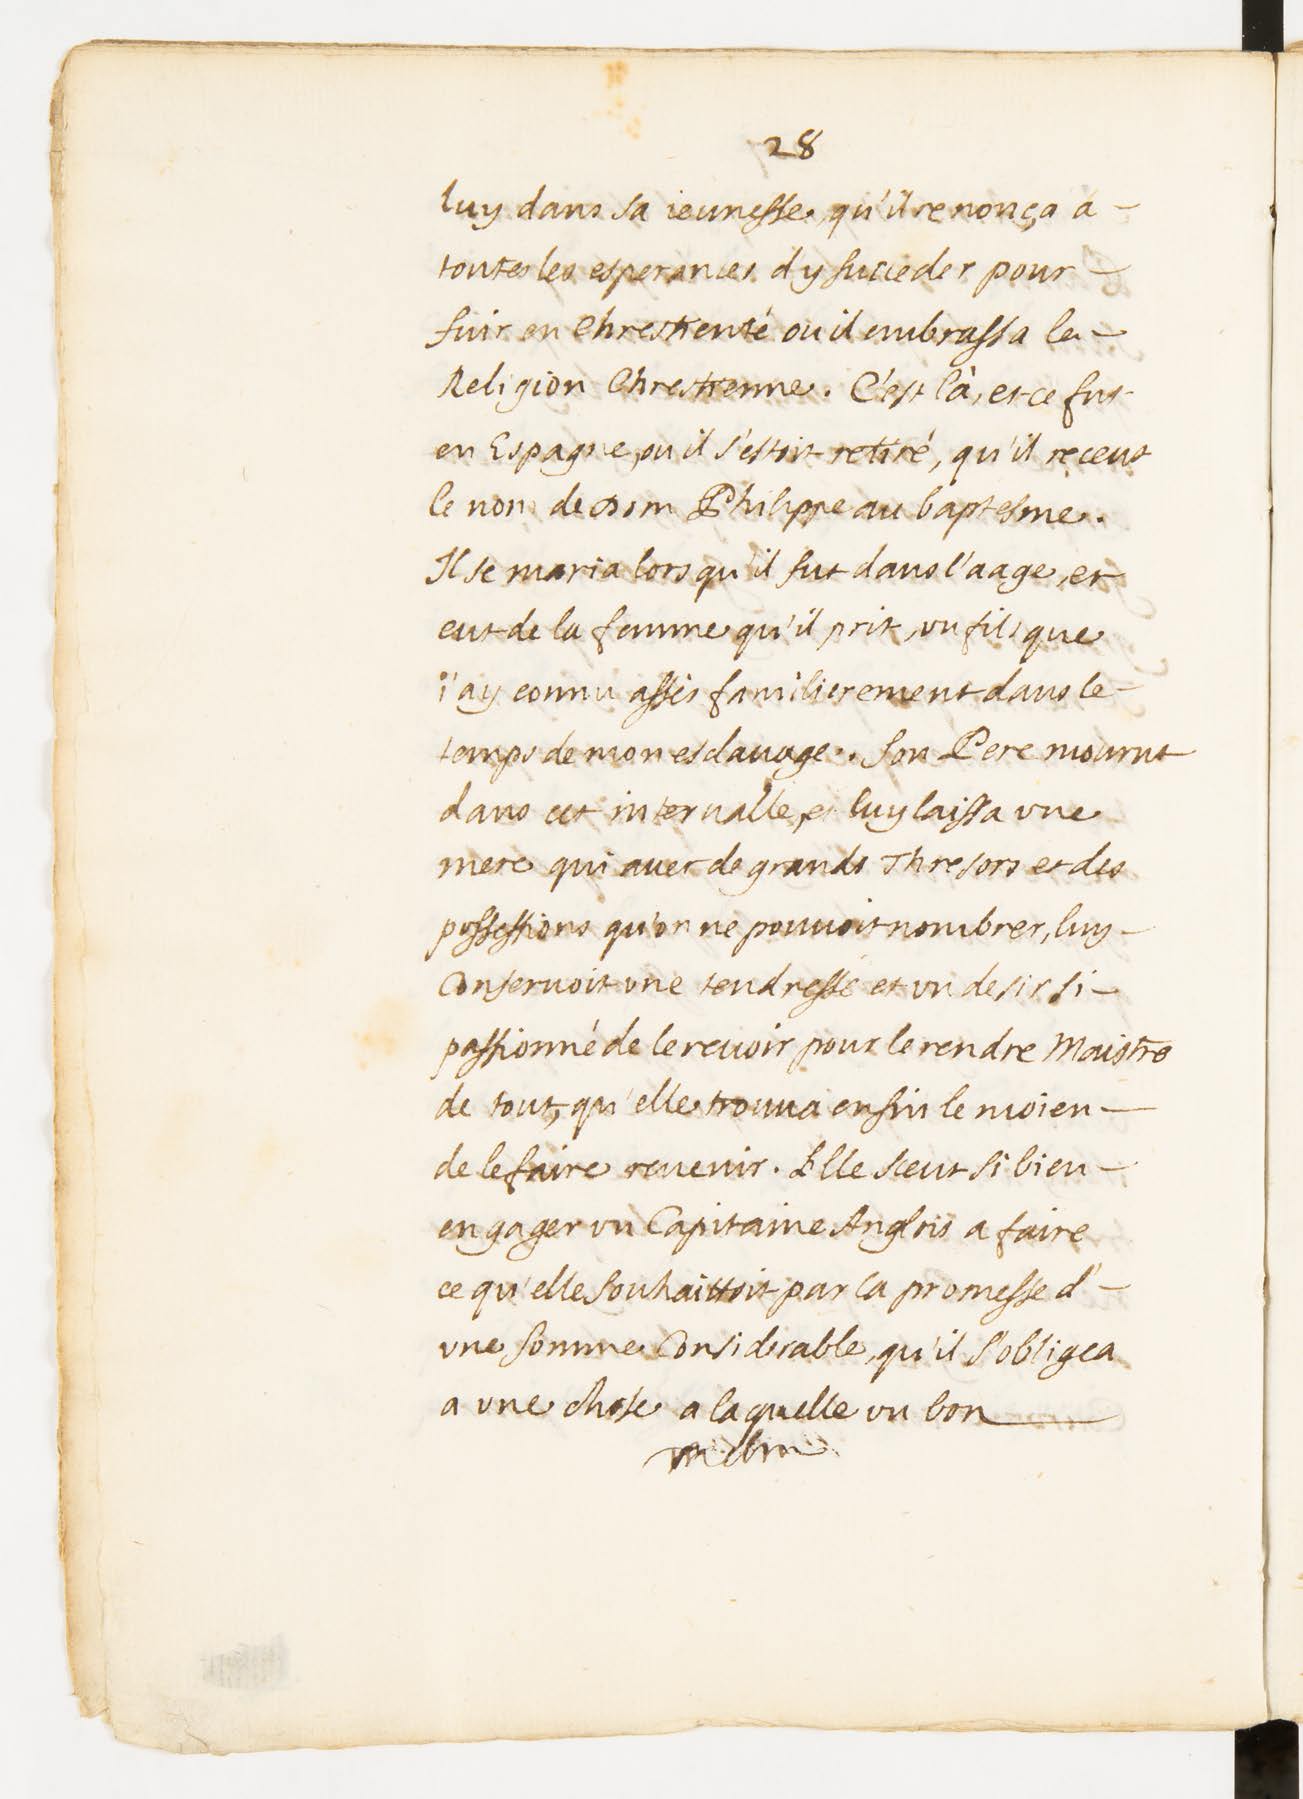 28
luy dans sa ieunesse, qu'il renonça a -
toutes les esperances d'y succeder pour -
fuir en Chrestienté ou il embrassa la -
Religion Chrestienne. C'est là, et ce fut
en Espagne, ou il s'estoit retiré, qu'il receut
le nom de Dom Philippe au baptesme.
Il se maria lors qu'il fut dans l'aage, et
eut de la femme qu'il prit, vn fils que
i'ay connu assés familierement dans le -
temps de mon esclauage. Son Pere mourut
dans cet interualle, et luy laissa vne
mere qui auec de grands Thresors et des
possessions qu'on ne pouuoit nombrer, luy -
Conseruoit vne tendresse et vn desir si -
passionné de le reuoir pour le rendre Maistre
de tout, qu'elle trouua enfin le moien -
de le faire reuenir. Elle sceut si bien -
engager vn Capitaine Anglois a faire
ce qu'elle souhaittoit par la promesse d' -
vne somme Considerable, qu'il s'obligea
a vne chose a laquelle vn bon